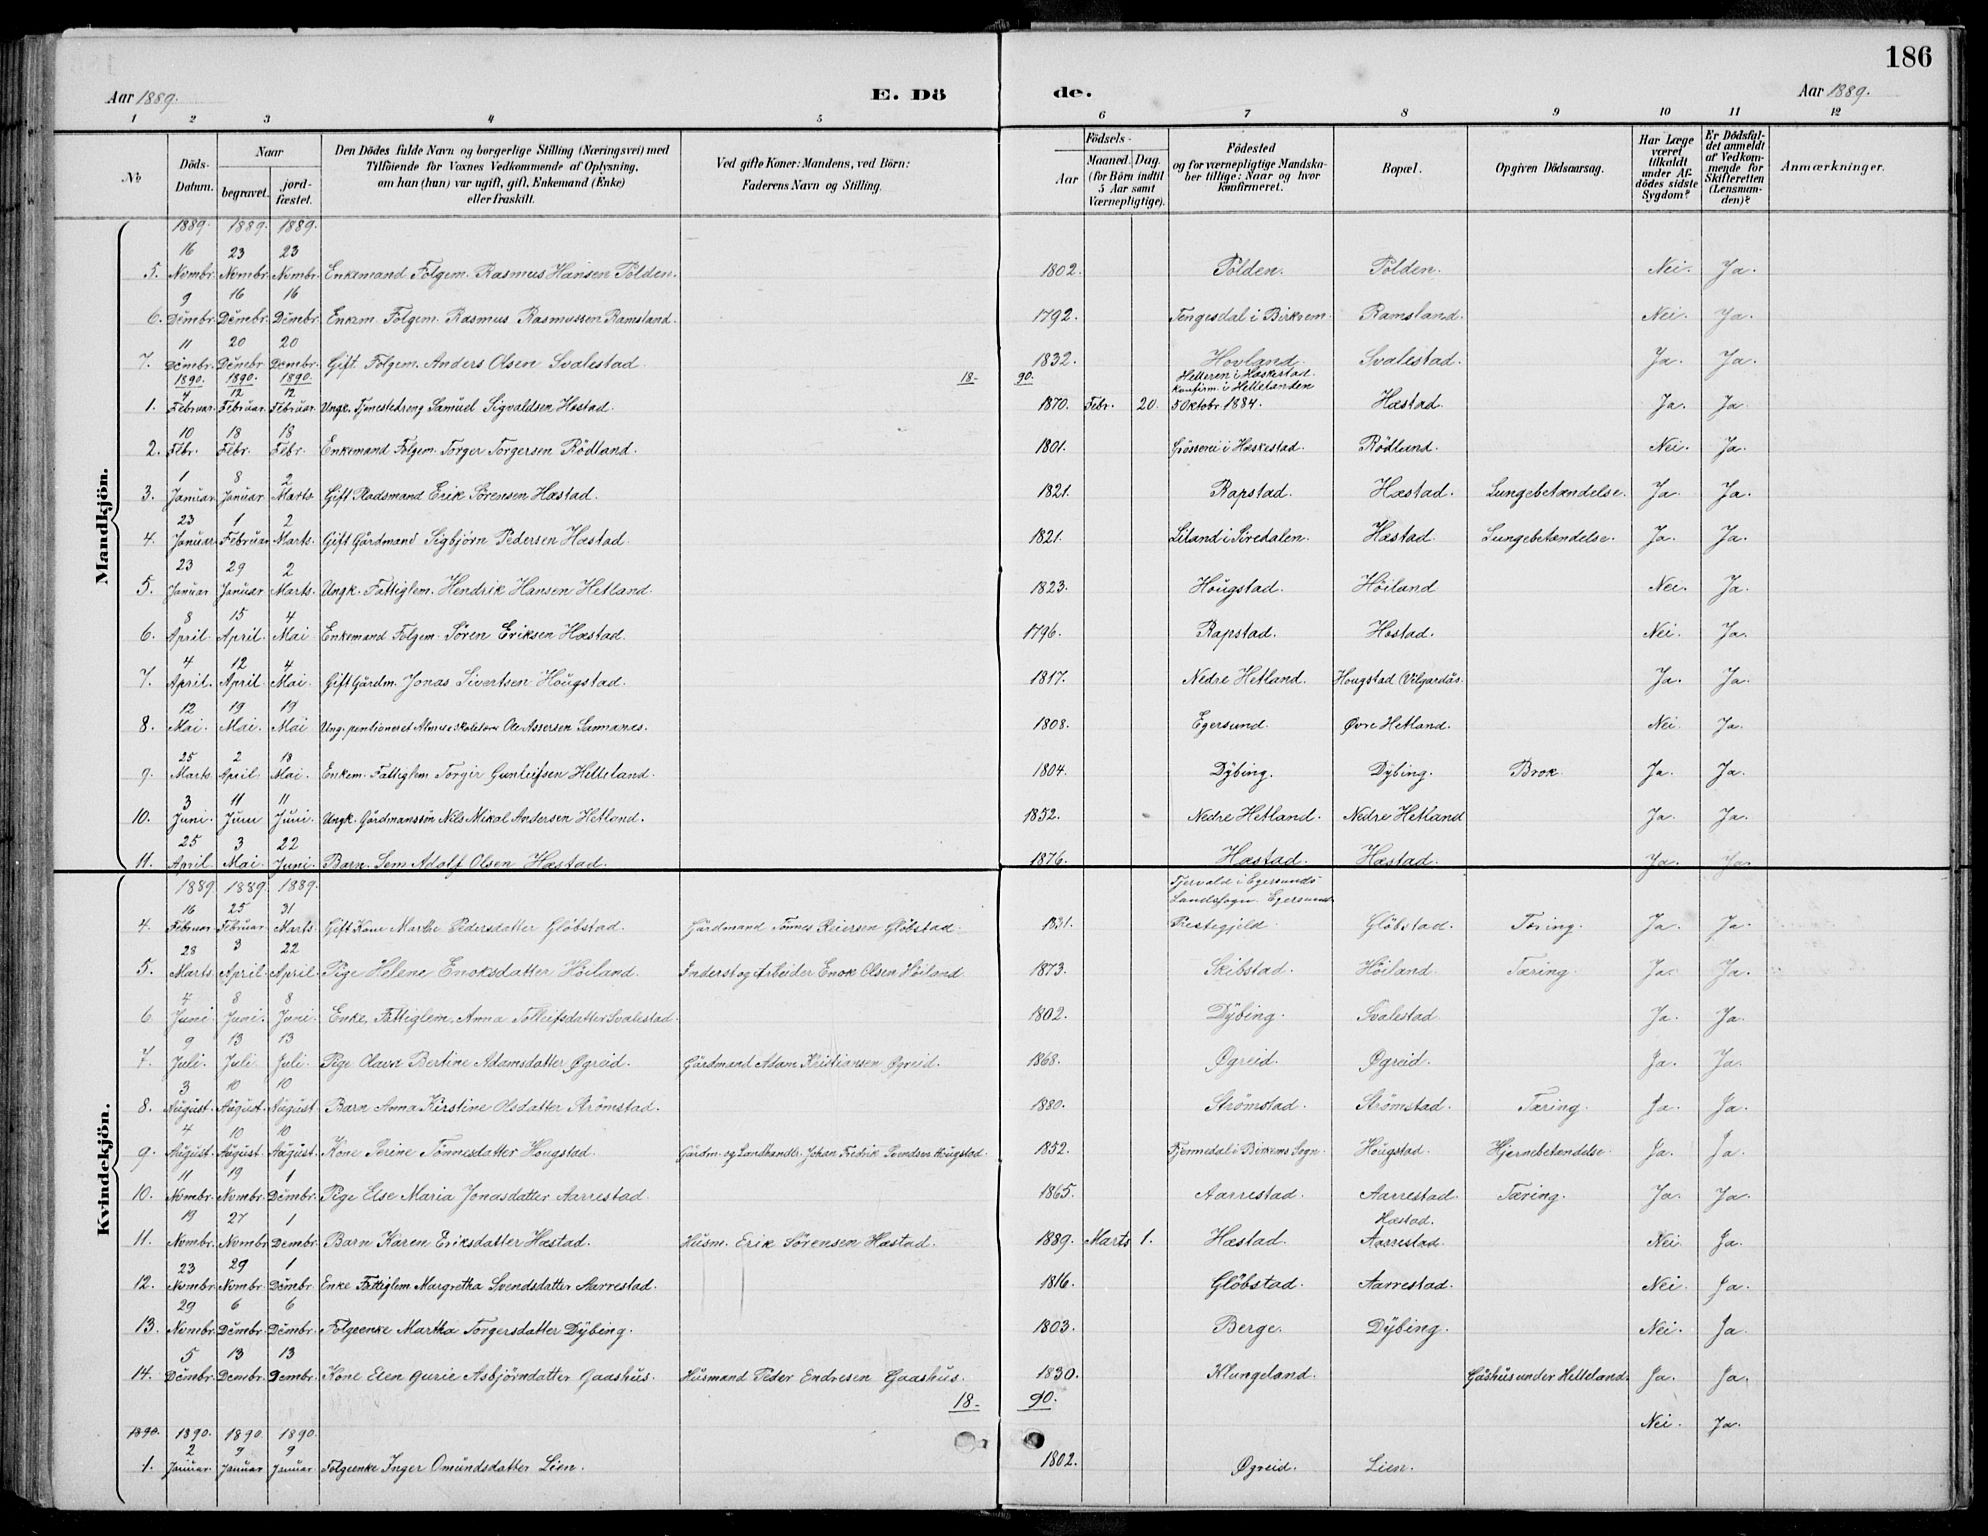 186
Aar 1889.
E. Dö
de.
Aar 1889.
1 2 3 4 5 6 7 8 9 10 11 12
No
Döds-Datum.
Naar
begravet.
jord-fæstet.
Den Dödes fulde Navn og borgerlige Stilling (Næringsvei) med
Tilföiende for Voxnes Vedkommende af Oplysning,
om han (hun) var ugift, gift, Enkemand (Enke)
eller fraskilt.
Ved gifte Koner: Mandens, ved Börn:
Faderens Navn og Stilling.
Födsels-
Aar
Maaned. Dag.
(for Börn indtil
5 Aar samt
Værnepligtige).
Födested
og for værnepligtige Mandska-
ber tillige: Naar og hvor
konfirmeret.
Bopæl.
Opgiven Dödsaarsag.
Har Læge
været
tilkaldt
under Af-
dödes sidste
Sygdom?
Er Dödsfal-
det anmeldt
af Vedkom-
mende for
Skifteretten
(Lensman-
den)?
Anmærkninger.
Mandkjön.
1889. 1889. 1889.
16 23 23
5. Novmbr. Novmbr. Novmbr. Enkemand Folgem. Rasmus Hansen Polden. 1802. Polden. Polden. Nei. Ja.
9 16 16
6. Dcmbr. Dcmbr. Dcmbr. Enkem. Folgem. Rasmus Rasmussen Ramsland. 1792. Tengesdal i Birkrem Ramsland. Nei. Ja.
11 20 20
7. Dcmbr. Dcmbr. Dcmbr. Gift. Folgem. Anders Olsen Svalestad. 1832. Hovland. Svalestad. Ja. Ja.
1890. 1890. 1890. 18- 90. Helleren i Heskestad.
4 12 12 Konfirm. i Hellelanden
1. Februar. Februar. Februar. Ungk. Tjenestedreng Samuel Sigvaldsen Hæstad. 1870. Febr. 20. 5 Oktobr. 1884. Hæstad. Ja. Ja.
10 18 18
2. Febr. Febr. Febr. Enkemand Folgem. Torger Torgersen Rödland. 1801. Grössevi i Heskestad. Rödland. Nei. Ja.
1 8 2
3. Januar. Januar Marts. Gift Pladsmand Erik Sörensen Hæstad. 1821. Rapstad. Hæstad. Lungebetændelse. Ja. Ja.
23 1 2
4. Januar. Februar Marts. Gift Gårdmand Sigbjørn Pedersen Hæstad. 1821. Liland i Siredalen. Hæstad. Lungebetændelse. Ja. Ja.
23 29 2
5. Januar Januar Marts. Ungk. Fattiglem. Hendrik Hansen Hetland. 1823. Hougstad. Höiland Nei. Ja.
8 15 4
6. April. April. Mai Enkemand Folgem. Sören Eriksen Hæstad. 1796. Rapstad. Hæstad. Nei. Ja.
4 12 4
7. April. April. Mai. Gift Gårdm. Jonas Sivertsen Hougstad. 1817. Nedre Hetland. Hougstad Ja. Ja.
12 19 19
8. Mai. Mai. Mai Ung. pentioneret Ole Assersen 1808. Egersund. Øvre Hetland. Nei. Ja.
25 2 18
9. Marts. April Mai. Enkem. Fattiglem Torgir Gunleifsen Helleland. 1804. Dybing. Dybing. Brok. Ja. Ja.
3 11 11
10. Juni. Juni Juni. Ungk. Gårdmanssön Nils Mikal Andersen Hetland. 1852. Nedre Hetland. Nedre Hetland Ja. Ja.
25 3 22
11. April Mai. Juni. Barn. Sem Adolf Olsen Hæstad. 1876. Hæstad. Hæstad. Ja. Ja.
Kvindekjön.
1889. 1889. 1889. Tjervald i Egersunds
16 25 31 Landsogn. Egersund
4. Februar Februar. Marts. Gift Kone Marthe Pedersdatter Glöbstad. Gårdmand Tönnes Reiersen Glöbstad. 1831. Prestegjeld. Glöbstad. Tæring. Ja. Ja.
28 3 22
5. Marts April. April. Pige Helene Enoksdatter Höiland. Inderst og Arbeider Enok Olsen Höiland 1873. Skibstad. Höiland. Tæring. Ja. Ja.
4 8 8
6 Juni. Juni. Juni. Enke, Fattiglem, Anna Tolleifsdatter Svalestad. 1802. Dybing. Svalestad Ja. Ja.
9 13 13
7. Juli. Juli. Juli. Pige Olava Bertine Adamsdatter Øgreid. Gårdmand Adam Kristiansen Øgreid. 1868. Øgreid. Øgreid. Ja. Ja.
3 10 10
8. August. August. August Barn Anna Kirstine Olsdatter Strömstad. 1880. Strömstad. Strömstad. Tæring. Ja. Ja.
4 10 10
9. August. August August. Kone Serine Tönnesdatter Hougstad. Gårdm. og Landhandlr. Johan Fredrik Svendsen Hougstad. 1852. Tjennedal i Birkrems Sogn. Hougstad. Hjernebetændelse. Ja. Ja.
11 19 1
10. Novmbr. Novmbr. Dcmbr. Pige Else Maria Jonasdatter Aarrestad. 1865. Aarrestad. Aarrestad. Tæring. Ja. Ja.
19 27 1 Hæstad.
11. Novmbr. Novmbr Dcmbr. Barn Karen Eriksdatter Hæstad. Husm. Erik Sörensen Hæstad. 1889. Marts 1. Hæstad. Aarrestad. Nei. Ja.
23 29 1
12. Novmbr. Novmbr. Dcmbr. Enke Fattiglem Margretha Svendsdatter Aarrestad. 1816. Glöbstad. Aarrestad. Nei. Ja.
29 6 6
13. Novmbr. Dcmbr. Dcmbr. Folgeenke Martha Torgersdatter Dybing. 1803. Berge. Dybing. Nei. Ja.
5 13 13
14. Dcmbr. Dcmbr. Dcmbr. Kone Elen Gurie Asbjörndatter Gaashus. Husmand Peder Endresen Gaashus. 1830. Klungeland. Gåshus under Helleland. Ja. Ja.
18- 90.
Nei. Ja.
1890. 1890. 1890. 1890.
2 9 9
1. Januar. Januar Januar Folgeenke Inger Omundsdatter Lien. 1802. Øgreid. Lien.